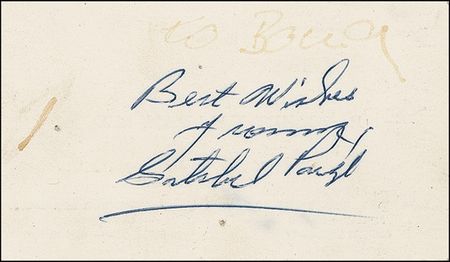 to Bouldy
Best Wishes
from
Satchel Paige